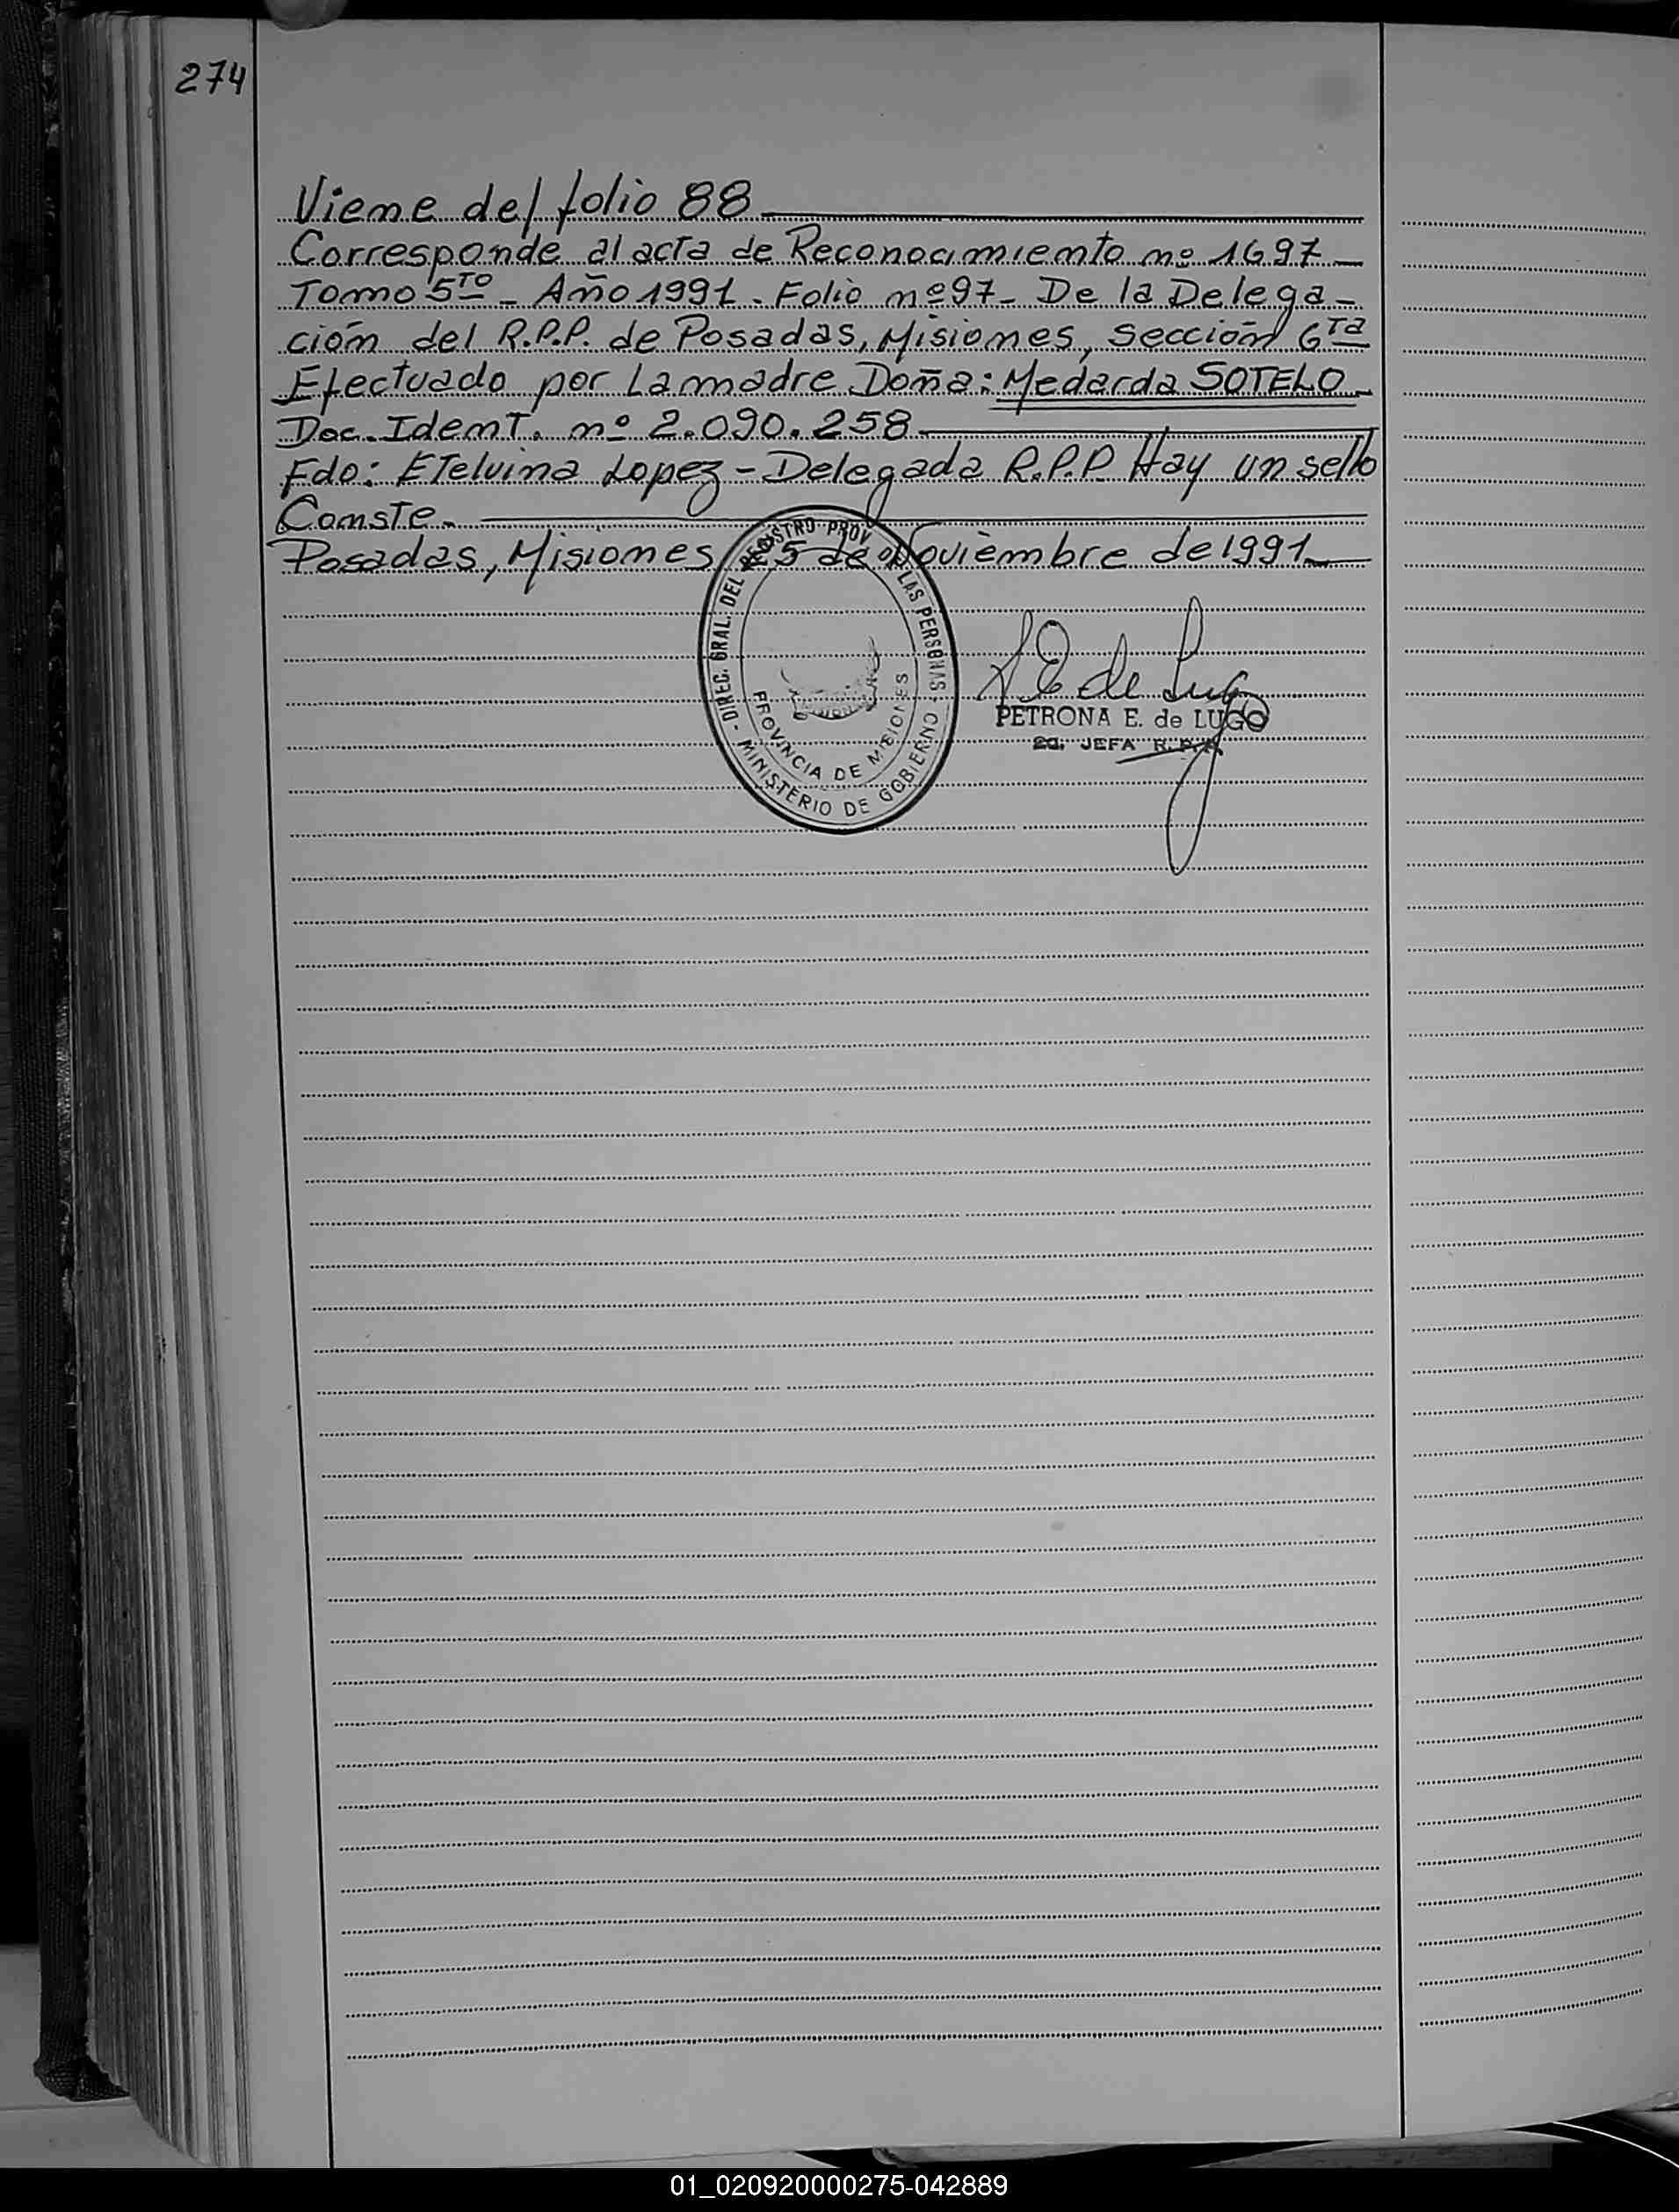 274
Viene del folio 88
Corresponde al acta de Reconocimiento nº 1697
Tomo 5to - Año 1991 - Folio nº 97 - De la Delega-
ción del R.P.P. de Posadas, Misiones, sección 6ta
Efectuado por La madre Doña: Medarda SOTELO
Doc. Ident. nº 2.090.258
Fdo: ETelvina Lopez - Delegada R.P.P. Hay un sello
Conste.
Posadas, Misiones 5 de Noviembre de 1991
- DIREC. GRAL. DEL REGISTRO PROV. LAS PERSONAS -
MINISTERIO DE GOBIERNO
PROVINCIA DE MISIONES
E de Lugo
PETRONA E. de LUGO
JEFA R.P.P.
01_020920000275-042889